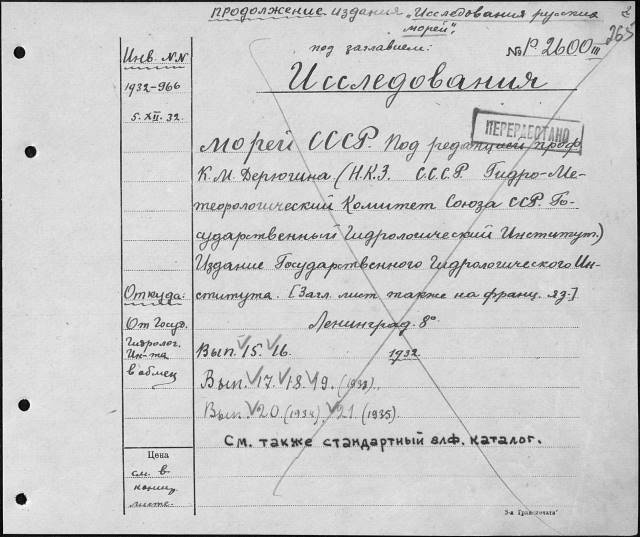 Продолжение издания „Исследования русских
морей",
под заглавием:
№ Р. 2600 III
265
Инв. NN
1932-966
5. XII. 32.
Исследования
ПЕРЕРАБОТАНО
морей СССР. Под редакцией проф.
К. М. Дерюгина. (Н.К.З. С.С.С.Р. Гидро-Ме-
теорологический Комитет Союза ССР. Го-
сударственный Гидрологический Институт.)
Издание Государственного Гидрологического Ин-
ститута. [Загл. лист также на франц. яз.]
Ленинград. 8°
Откуда:
От Госуд.
Гидролог.
Ин-та
в обмен
Вып. 15. 16. 1932.
Вып. 17. 18. 19. (1933).
Вып. 20 (1934). 21 (1935).
См. также стандартный алф. каталог.
Цена
см. в
конц.
листе.